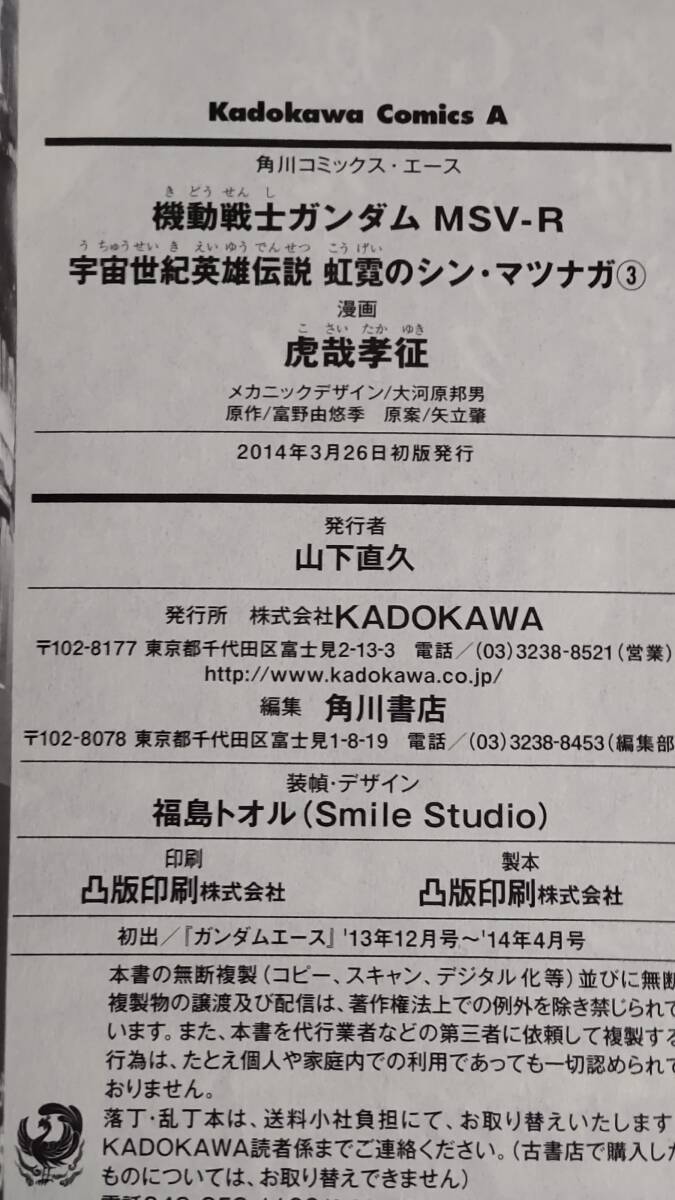 Kadokawa Comics A
角川コミックス・エース
き どう せん し
機動戦士ガンダム MSV-R
う ちゅう せい き えい ゆう でん せつ こう げい
宇宙世紀英雄伝説 虹霓のシン・マツナガ③
漫画
こ さい たか ゆき
虎哉孝征
メカニックデザイン/大河原邦男
原作/富野由悠季 原案/矢立肇
2014年3月26日初版発行
発行者
山下直久
発行所 株式会社KADOKAWA
〒102-8177 東京都千代田区富士見2-13-3 電話/(03)3238-8521(営業)
http://www.kadokawa.co.jp/
編集 角川書店
〒102-8078 東京都千代田区富士見1-8-19 電話/(03)3238-8453(編集部
装幀・デザイン
福島トオル(Smile Studio)
印刷 製本
凸版印刷株式会社 凸版印刷株式会社
初出/『ガンダムエース』'13年12月号〜'14年4月号
本書の無断複製(コピー、スキャン、デジタル化等)並びに無断
複製物の譲渡及び配信は、著作権法上での例外を除き禁じられて
います。また、本書を代行業者などの第三者に依頼して複製する
行為は、たとえ個人や家庭内での利用であっても一切認められて
おりません。
落丁・乱丁本は、送料小社負担にて、お取り替えいたします
KADOKAWA読者係までご連絡ください。(古書店で購入した
ものについては、お取り替えできません)